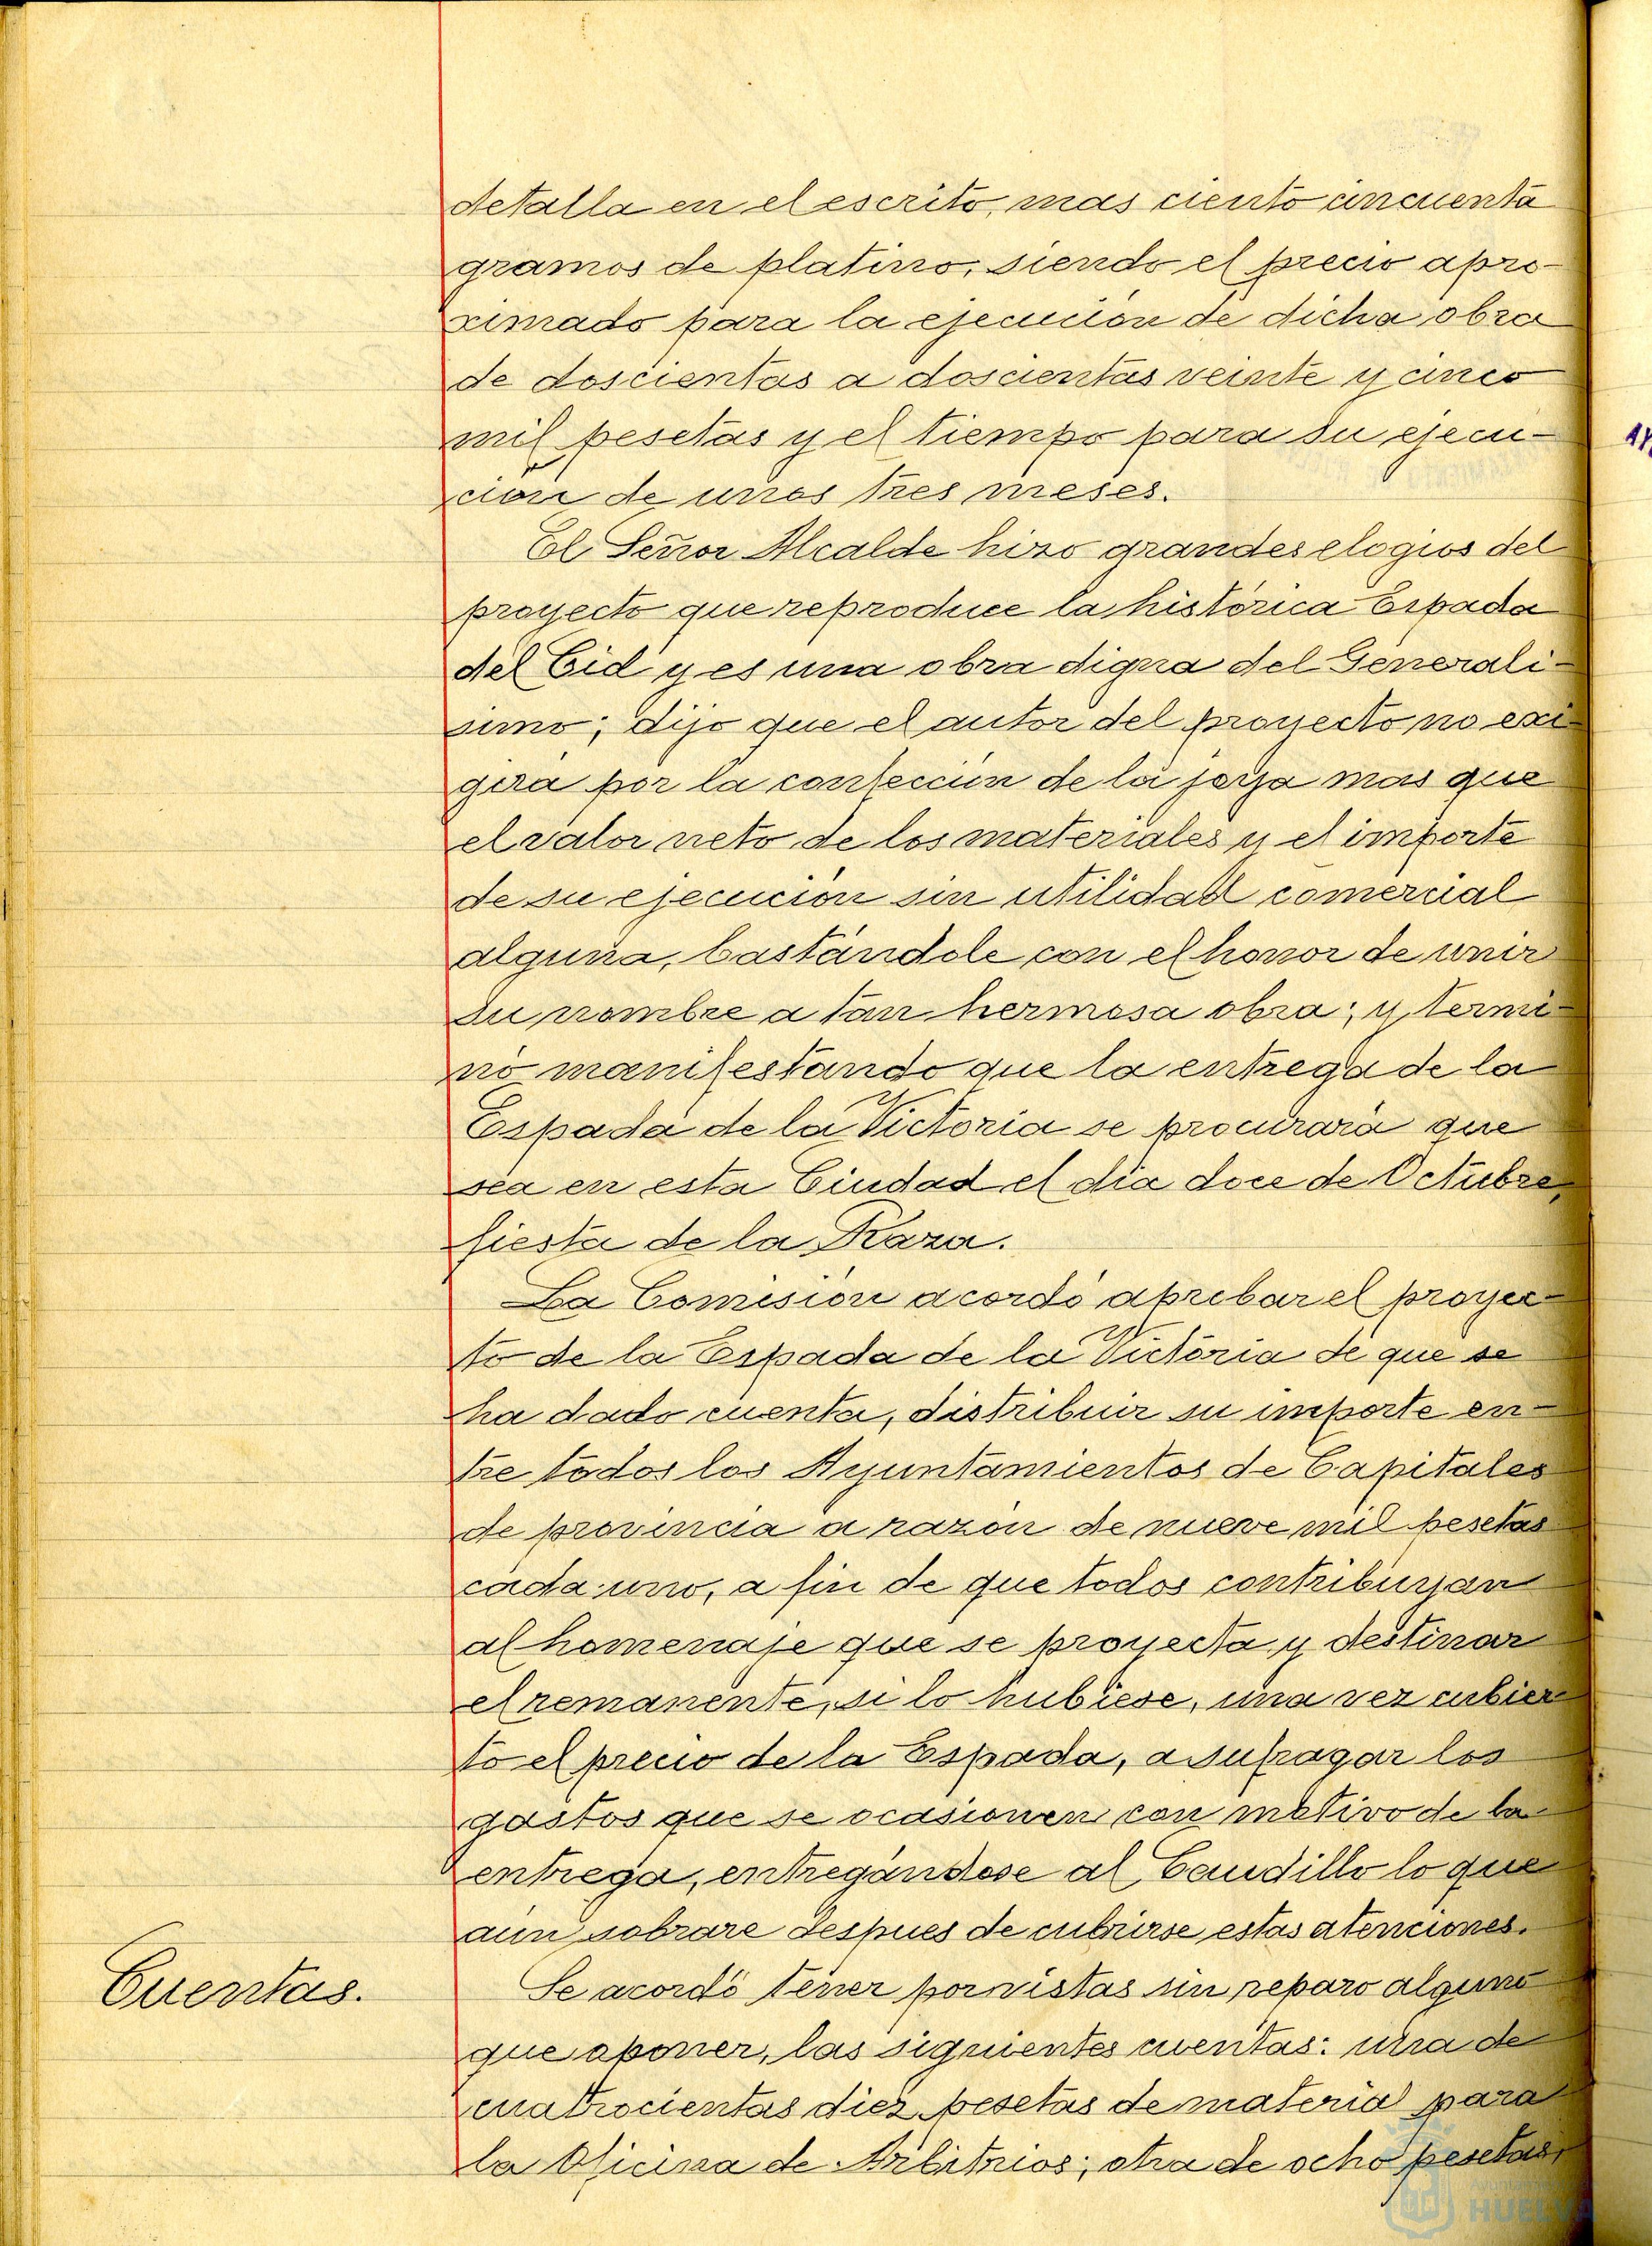 detalla en el escrito, mas ciento cincuenta
gramos de platino, siendo el precio apro-
ximado para la ejecución de dicha obra
de doscientas a doscientas veinte y cinco
mil pesetas y el tiempo para su ejecu-
ción de unos tres meses.
El Señor Alcalde hizo grandes elogios del
proyecto que reproduce la histórica Espada
del Cid y es una obra digna del Generali-
simo; dijo que el autor del proyecto no exi-
girá por la confección de la joya mas que
el valor neto de los materiales y el importe
de su ejecución sin utilidad comercial
alguna, bastándole con el honor de unir
su nombre a tan hermosa obra; y termi-
nó manifestando que la entrega de la
Espada de la Victoria se procurará que
sea en esta Ciudad el día doce de Octubre,
fiesta de la Raza.
La Comisión acordó aprobar el proyec-
to de la Espada de la Victoria de que se
ha dado cuenta, distribuir su importe en-
tre todos los Ayuntamientos de Capitales
de provincia a razón de nueve mil pesetas
cada uno, a fin de que todos contribuyan
al homenaje que se proyecta y destinar
el remanente, si lo hubiese, una vez cubier
to el precio de la Espada, a sufragar los
gastos que se ocasionen con motivo de la
entrega, entregándose al Caudillo lo que
aún sobrare despues de cubrirse estas atenciones.
Cuentas.
Se acordó tener por vistas sin reparo alguno
que oponer, las siguientes cuentas: una de
cuatrocientas diez pesetas de material para
la Oficina de Arbitrios; otra de ocho pesetas,
HUELVA